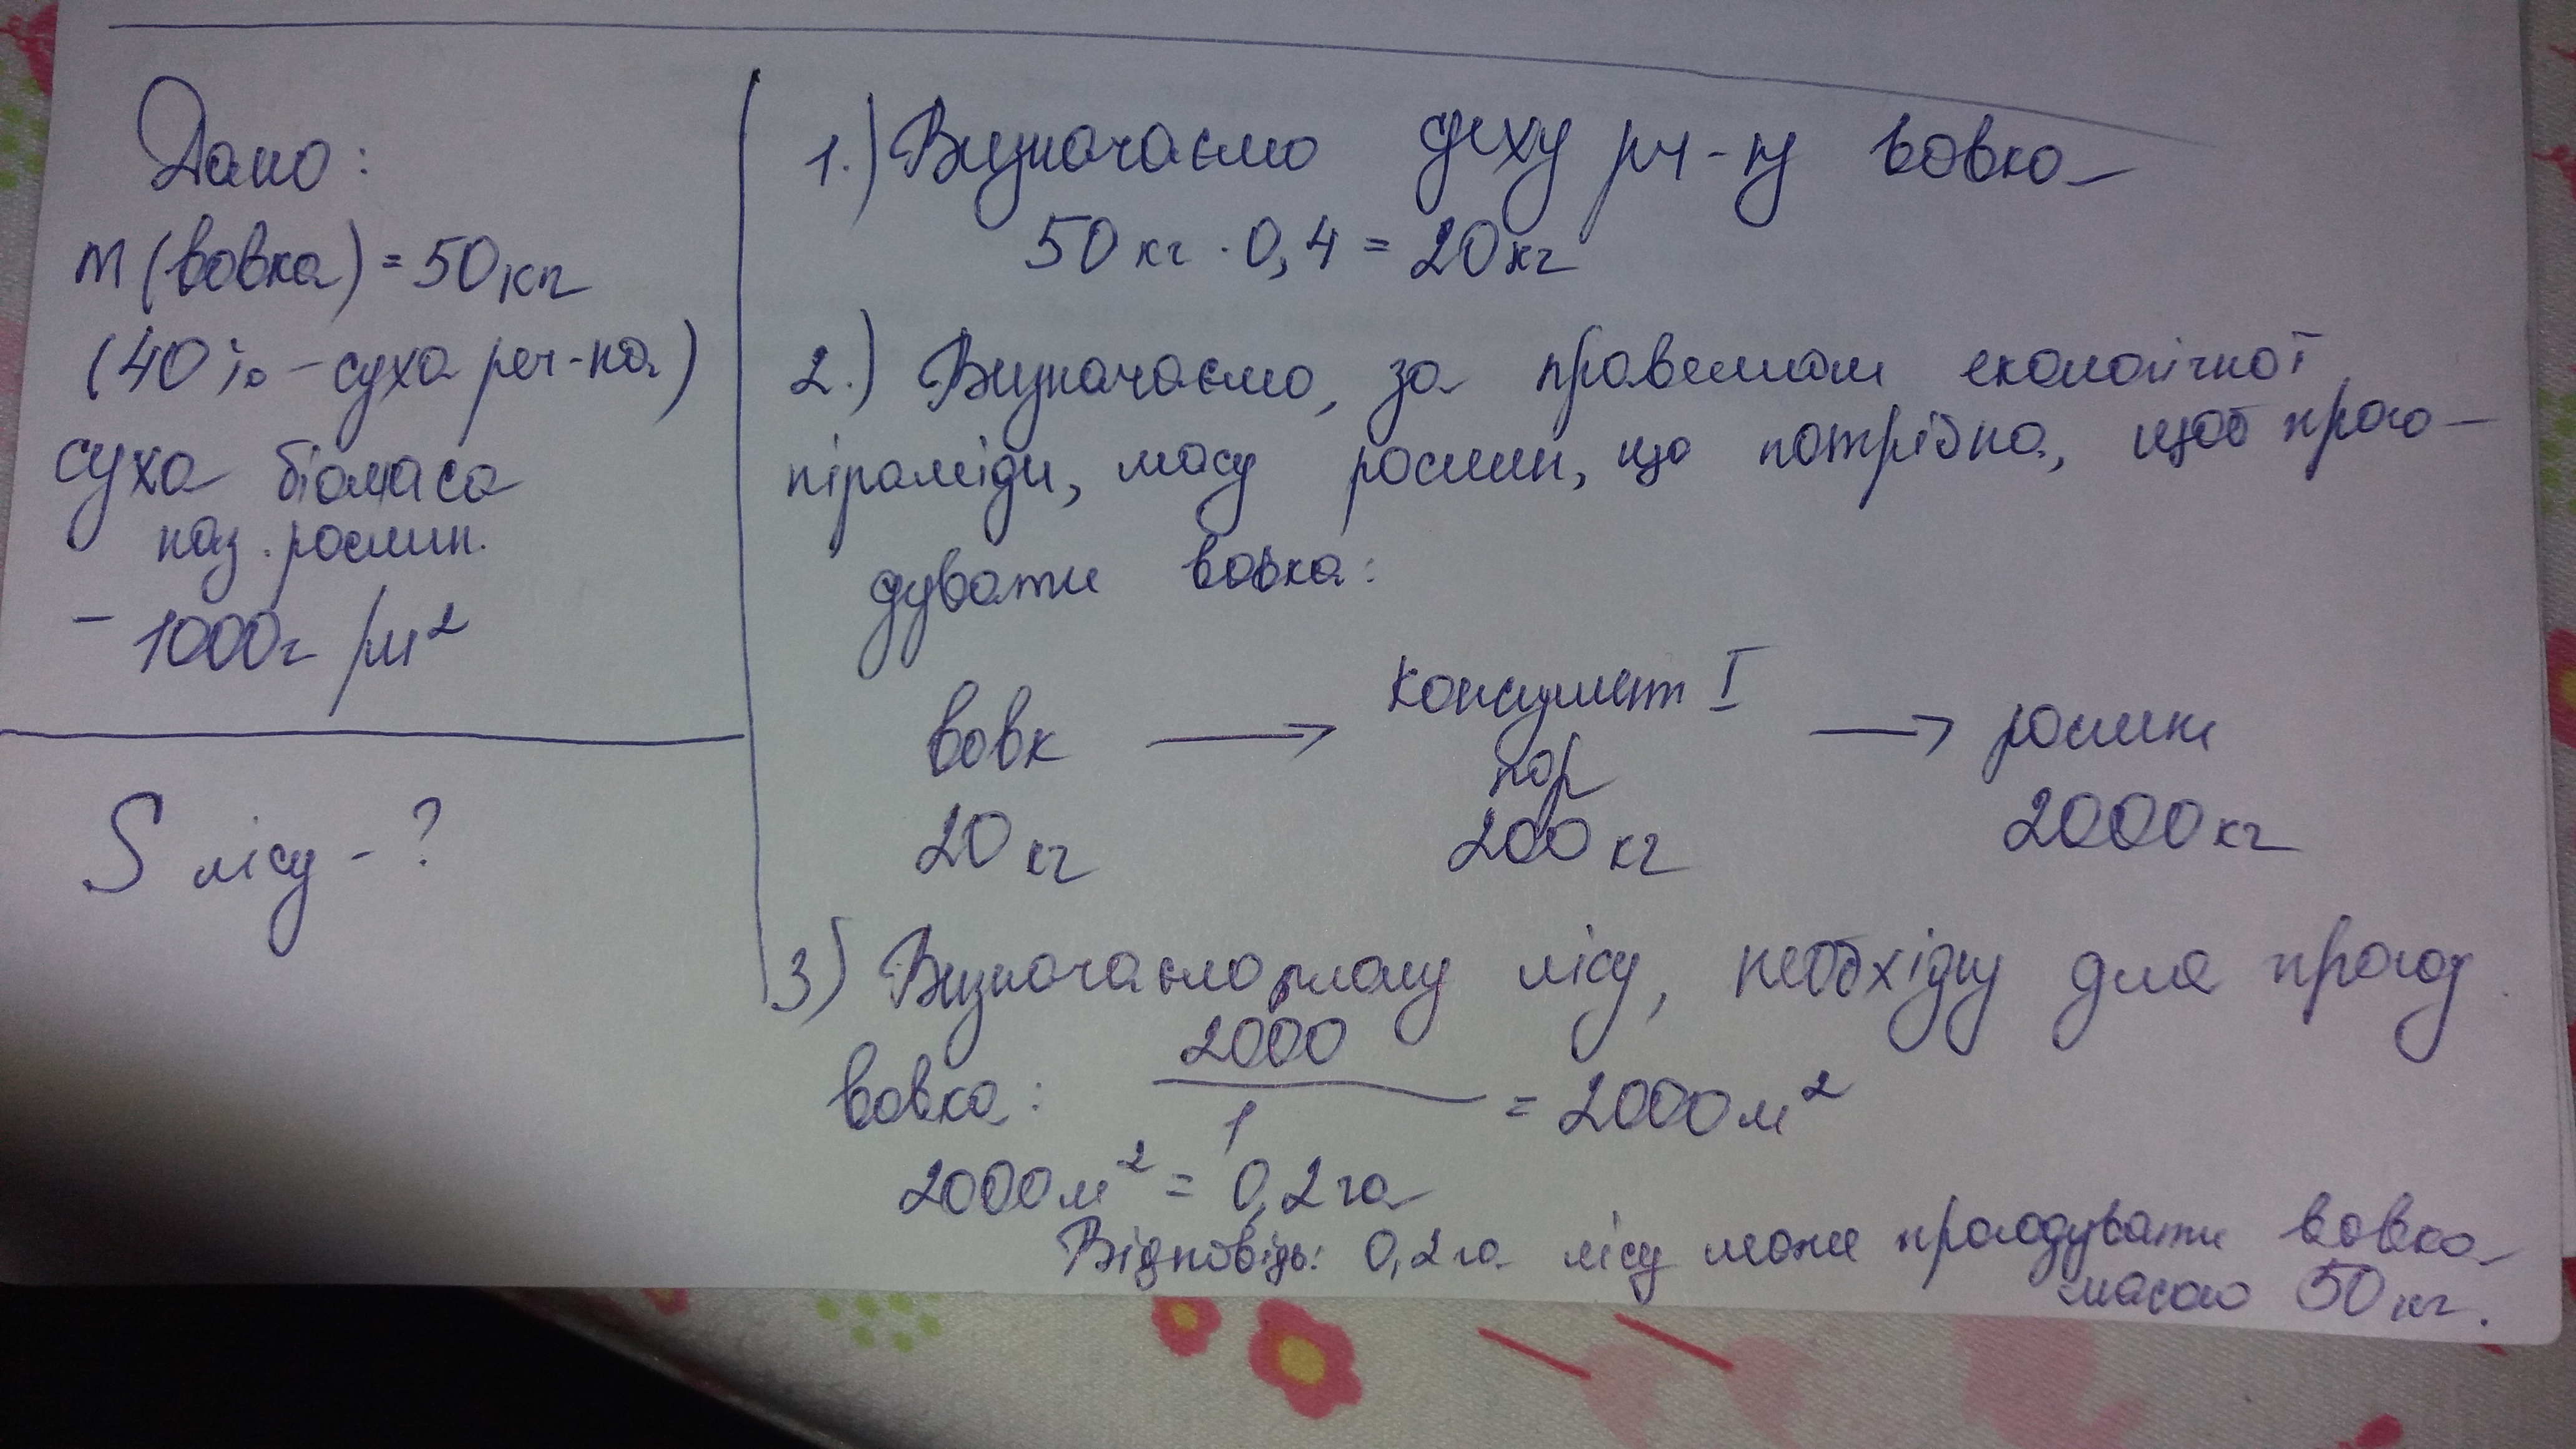 Дано:
m (вовка) = 50 кг
(40% - суха реч-на)
суха біомаса
наз. рослин.
- 1000г /м²
S лісу - ?
1.) Визначаємо суху рч-ну вовка
50 кг · 0,4 = 20 кг
2.) Визначаємо, за правилом екологічної
піраміди, масу рослин, що потрібна, щоб прого-
дувати вовка:
вовк → консумент I → рослини
пор
20 кг 200 кг 2000 кг
3) Визначаємо площу лісу, необхідну для прогод.
вовка: 2000 / 1 = 2000 м²
2000 м² = 0,2 га
Відповідь: 0,2 га лісу може прогодувати вовка
масою 50 кг.